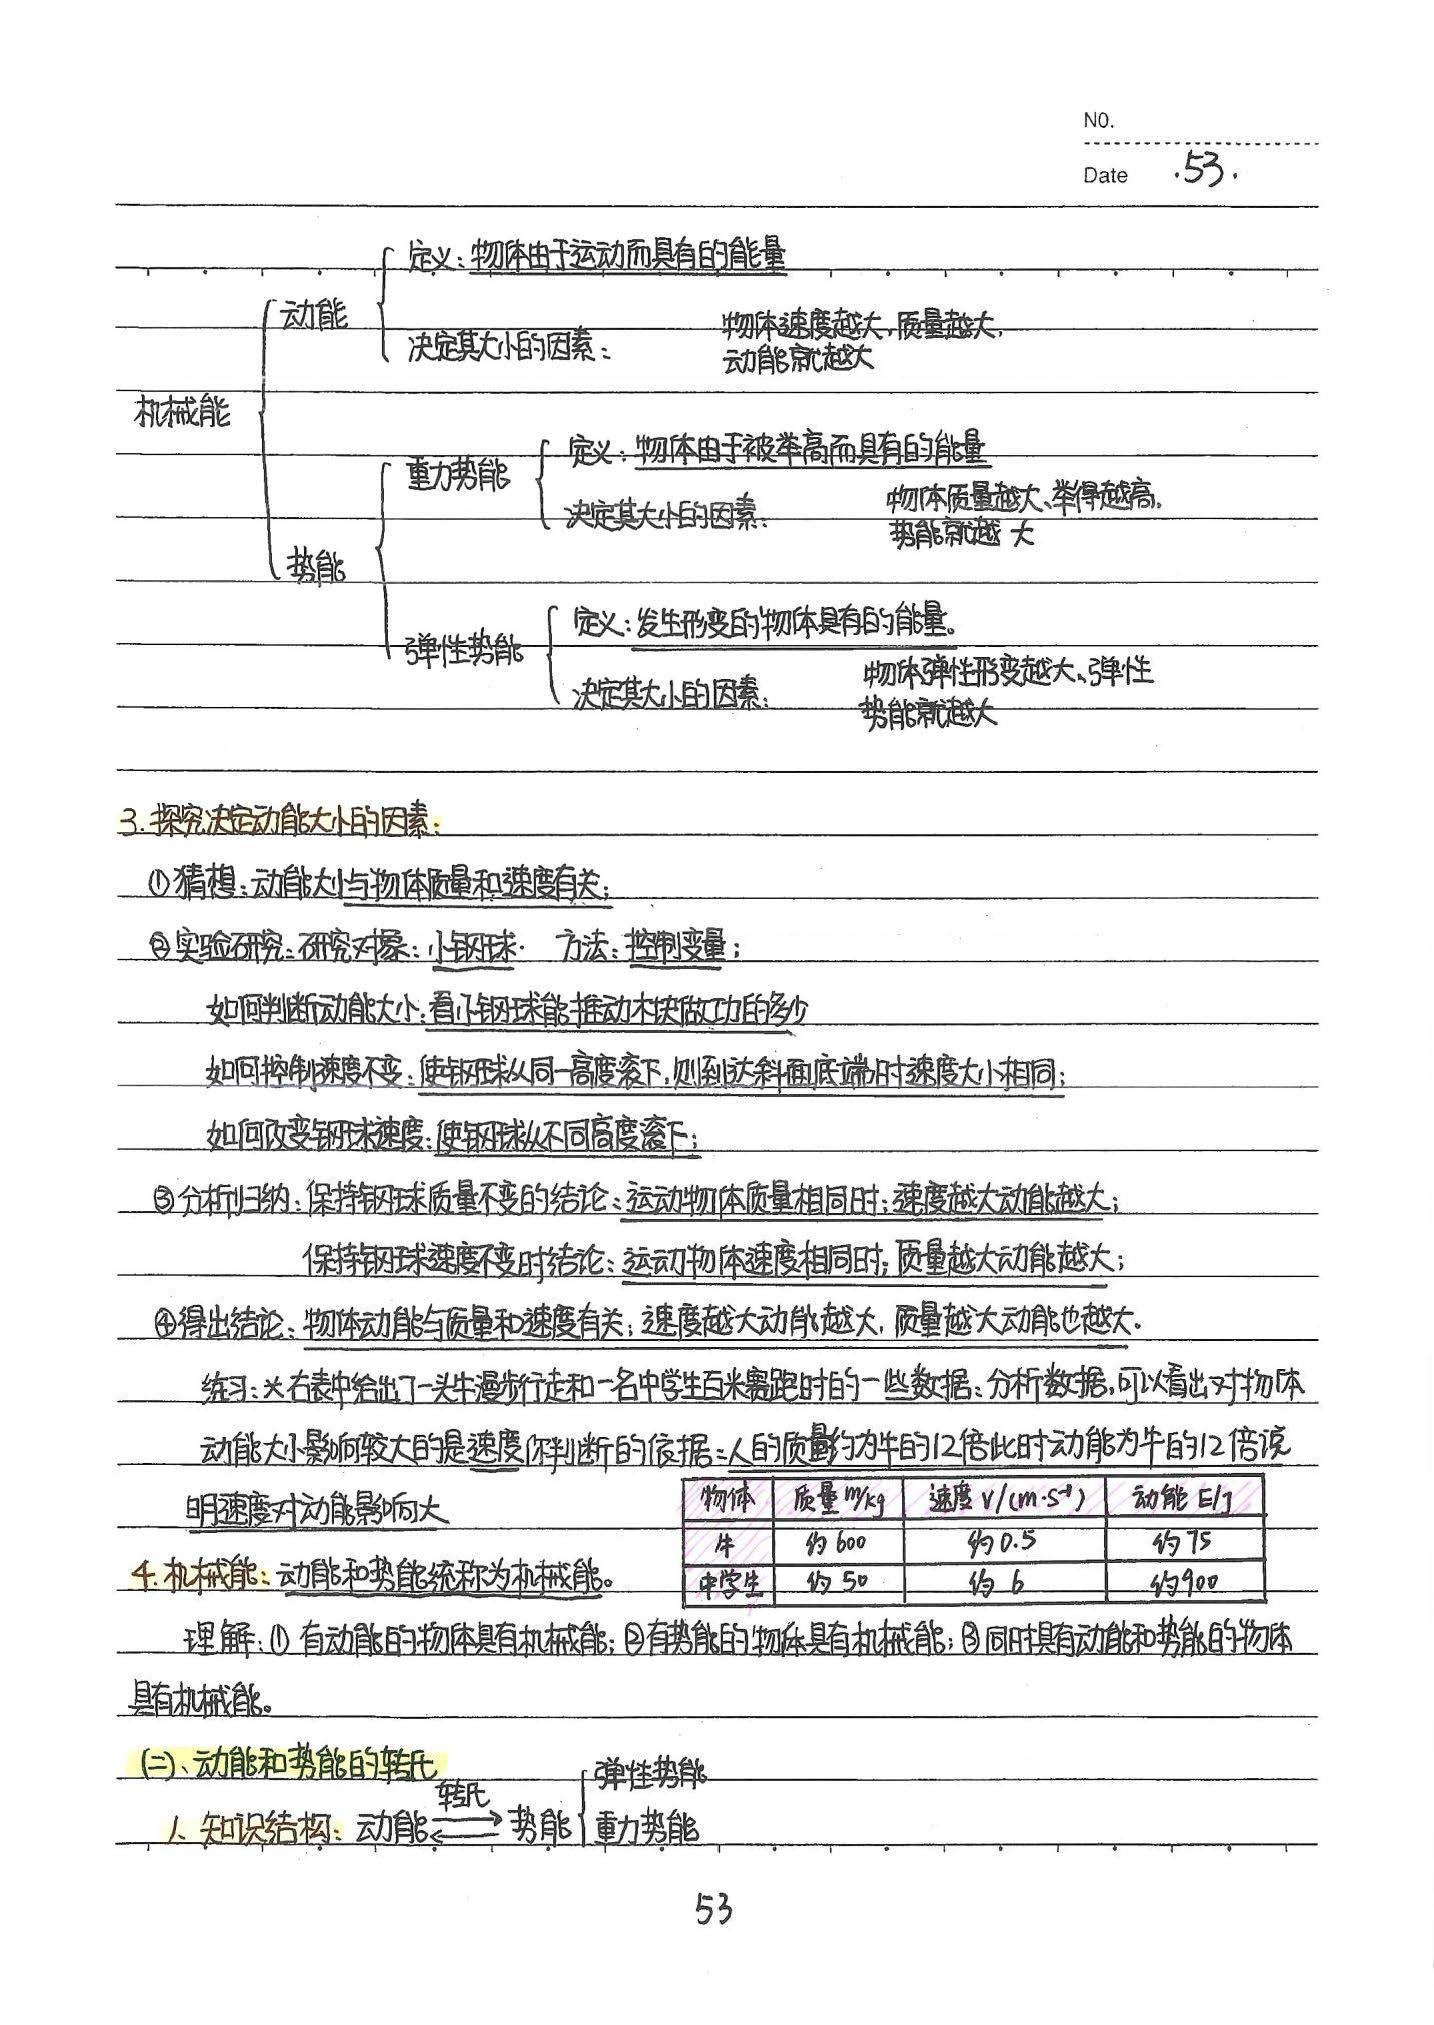 NO.
Date .53.
定义：物体由于运动而具有的能量
动能
物体速度越大、质量越大，
决定其大小的因素：
动能就越大
机械能
定义：物体由于被举高而具有的能量
重力势能
物体质量越大、举得越高，
决定其大小的因素：
势能就越大
势能
定义：发生形变的物体具有的能量。
弹性势能
物体弹性形变越大、弹性
决定其大小的因素：
势能就越大
3.探究决定动能大小的因素：
①猜想：动能大小与物体质量和速度有关；
②实验研究：研究对象：小钢球· 方法：控制变量；
如何判断动能大小：看小钢球能推动木块做功的多少
如何控制速度不变：使钢球从同一高度滚下，则到达斜面底端时速度大小相同；
如何改变钢球速度：使钢球从不同高度滚下；
③分析归纳：保持钢球质量不变的结论：运动物体质量相同时；速度越大动能越大；
保持钢球速度不变时结论：运动物体速度相同时；质量越大动能越大；
④得出结论：物体动能与质量和速度有关；速度越大动能越大，质量越大动能也越大。
练习：※右表中给出了一头牛漫步行走和一名中学生百米赛跑时的一些数据：分析数据，可以看出对物体
动能大小影响较大的是速度你判断的依据：人的质量约为牛的12倍此时动能为牛的12倍说
明速度对动能影响大
物体 质量 m/kg 速度 v/(m·s⁻¹) 动能 E/J
牛 约600 约0.5 约75
中学生 约50 约6 约900
4.机械能：动能和势能统称为机械能。
理解：①有动能的物体具有机械能；②有势能的物体具有机械能；③同时具有动能和势能的物体
具有机械能。
(二)、动能和势能的转化
1、知识结构：动能 转化 势能
弹性势能
重力势能
53